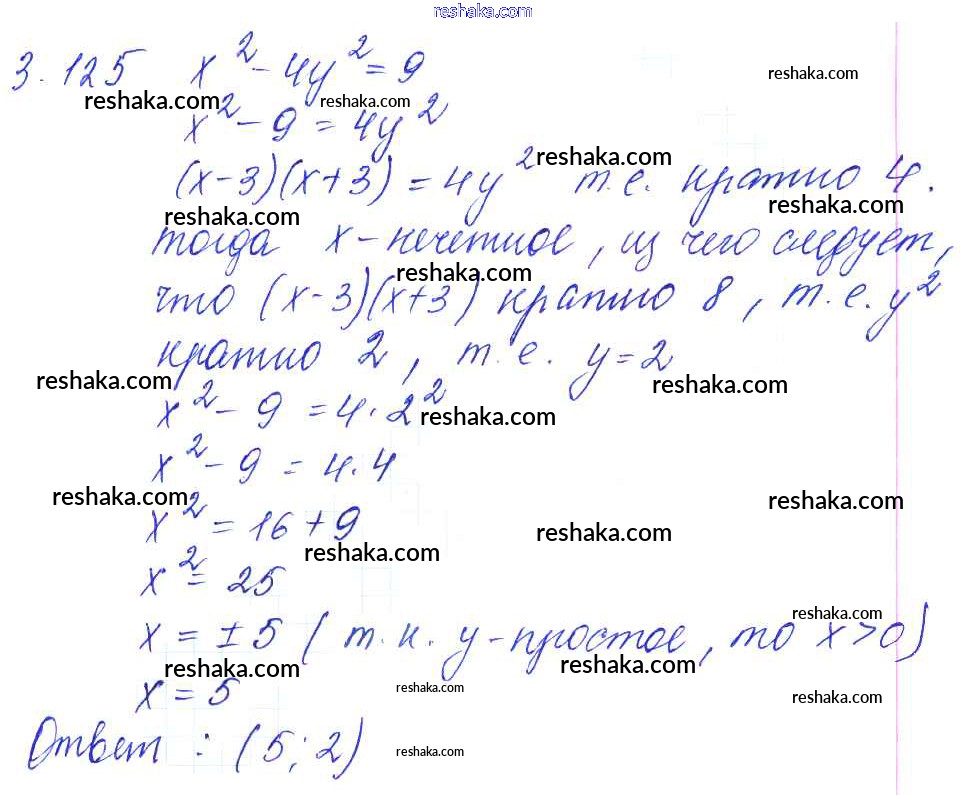 reshaka.com
3.125 x² - 4y² = 9
reshaka.com
reshaka.com
reshaka.com
x² - 9 = 4y²
reshaka.com
(x-3)(x+3) = 4y² т.е. кратно 4.
reshaka.com
reshaka.com
тогда x - нечетное, из чего следует,
reshaka.com
что (x-3)(x+3) кратно 8, т.е. y²
кратно 2, т.е. y=2
reshaka.com
reshaka.com
x² - 9 = 4·2²
reshaka.com
x² - 9 = 4·4
reshaka.com
reshaka.com
x² = 16 + 9
reshaka.com
reshaka.com
x² = 25
reshaka.com
x = ±5 (т.к. y-простое, то x>0)
reshaka.com
reshaka.com
x = 5
reshaka.com
reshaka.com
Ответ: (5; 2)
reshaka.com